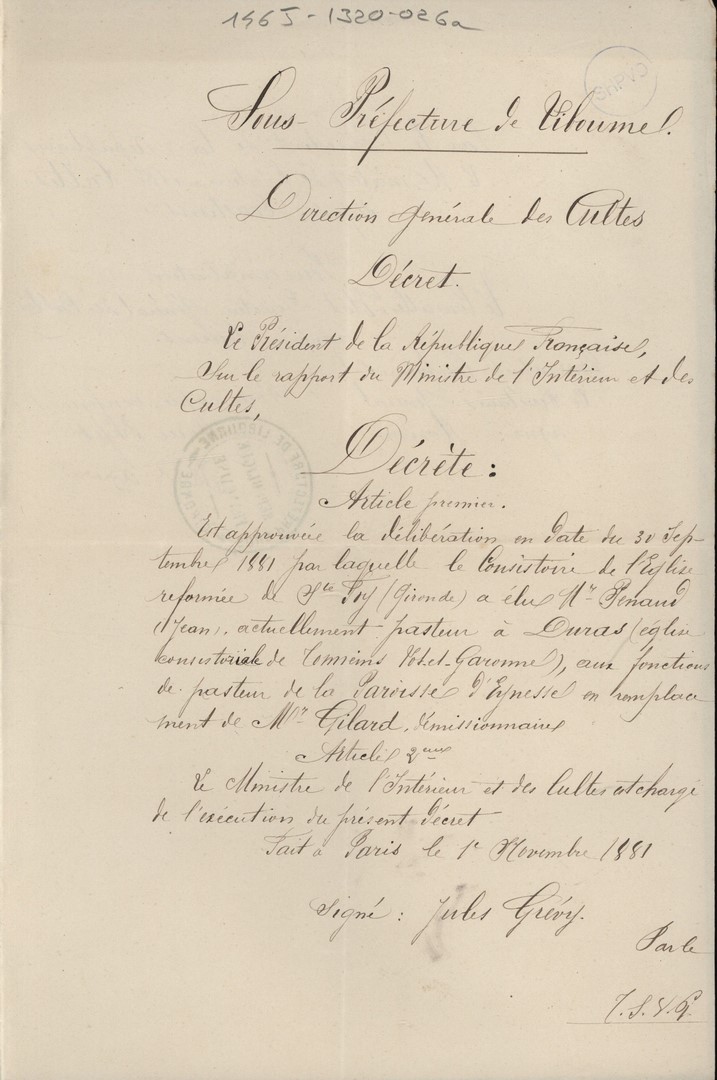 1465-1320-026a
Sous-Préfecture de Libourne.
Direction générale des Cultes
Décret.
Le Président de la République Française,
Sur le rapport du Ministre de l'Intérieur et des
Cultes,
Décrète :
Article premier.
Est approuvée la délibération en date du 30 Sep-
tembre 1881 par laquelle le Consistoire de l'Eglise
reformée de Ste Foy (Gironde) a élu Mr Penaud
(Jean), actuellement pasteur à Duras (église
consistoriale de Tonneins Lot-et-Garonne), aux fonctions
de pasteur de la Paroisse d'Eynesse en remplace
ment de Mr Gilard, démissionnaire
Article 2eme
Le Ministre de l'Intérieur et des Cultes est chargé
de l'exécution du présent décret
Fait à Paris le 1r Novembre 1881
Signé : Jules Grévy.
Par le
T.S.V.P.